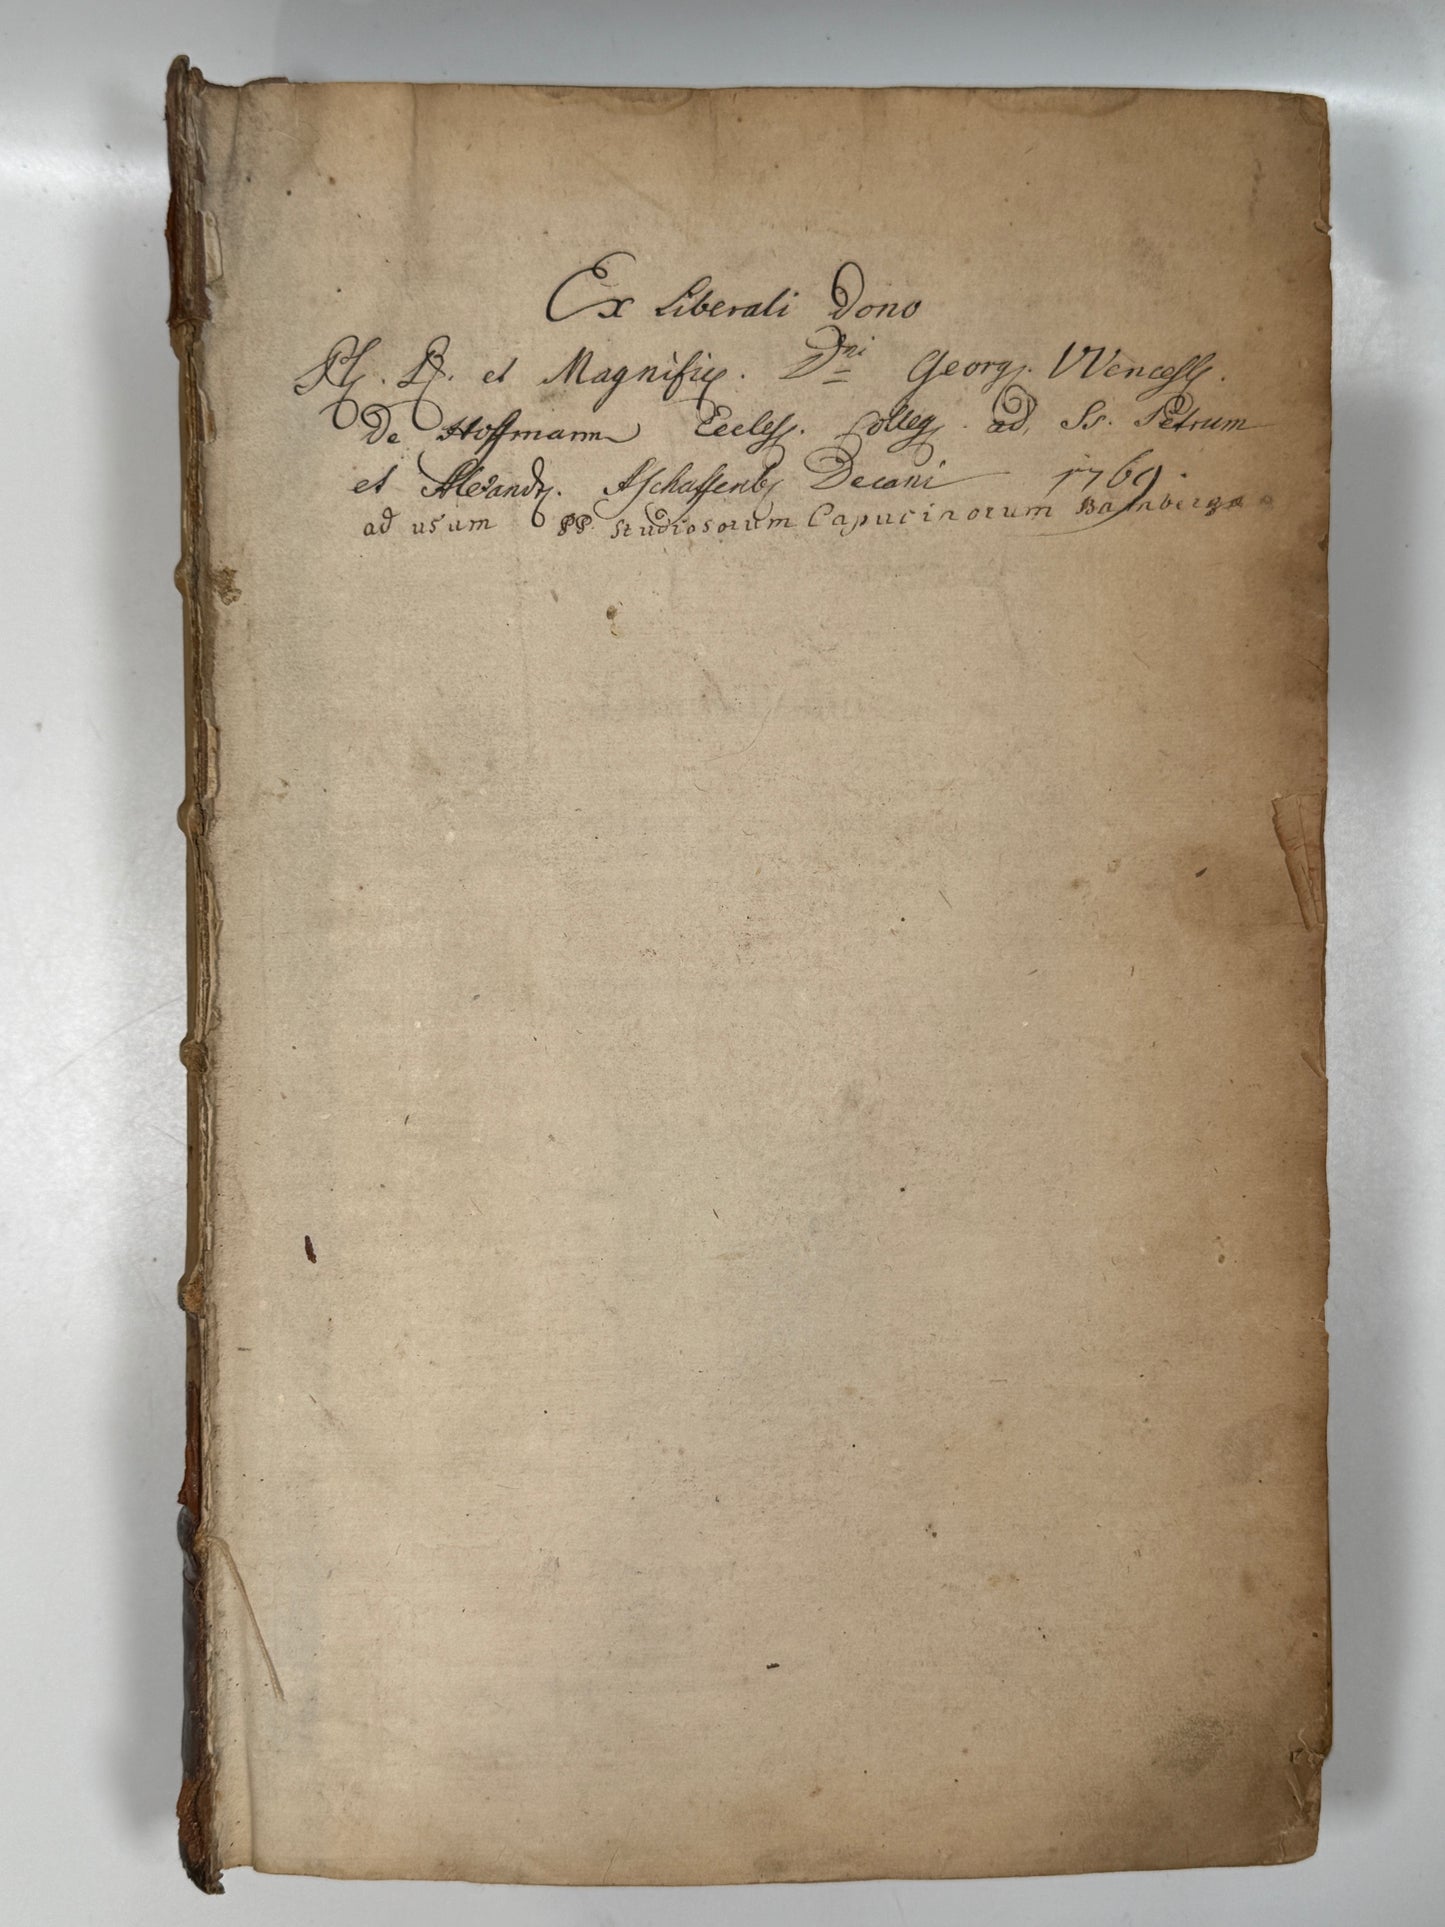 Ex Liberali Dono
Pl. R. et Magnific. Dni Georg. Wencesl.
De Hoffmann Eccles. Colleg. ad Ss. Petrum
et Alexandr. Aschaffenb. Decani 1769.
ad usum PP. Studiosorum Capucinorum Bambergae